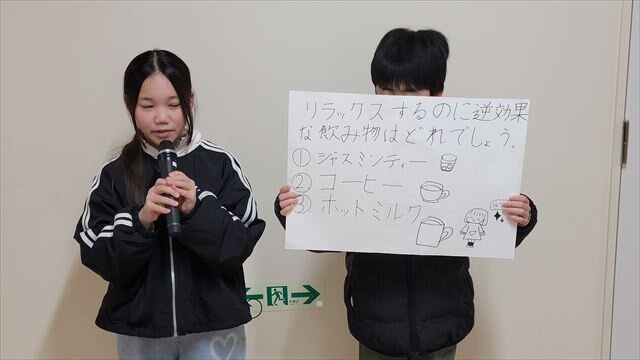 リラックスするのに逆効果
な飲み物はどれでしょう。
① ジャスミンティー
② コーヒー
③. ホットミルク